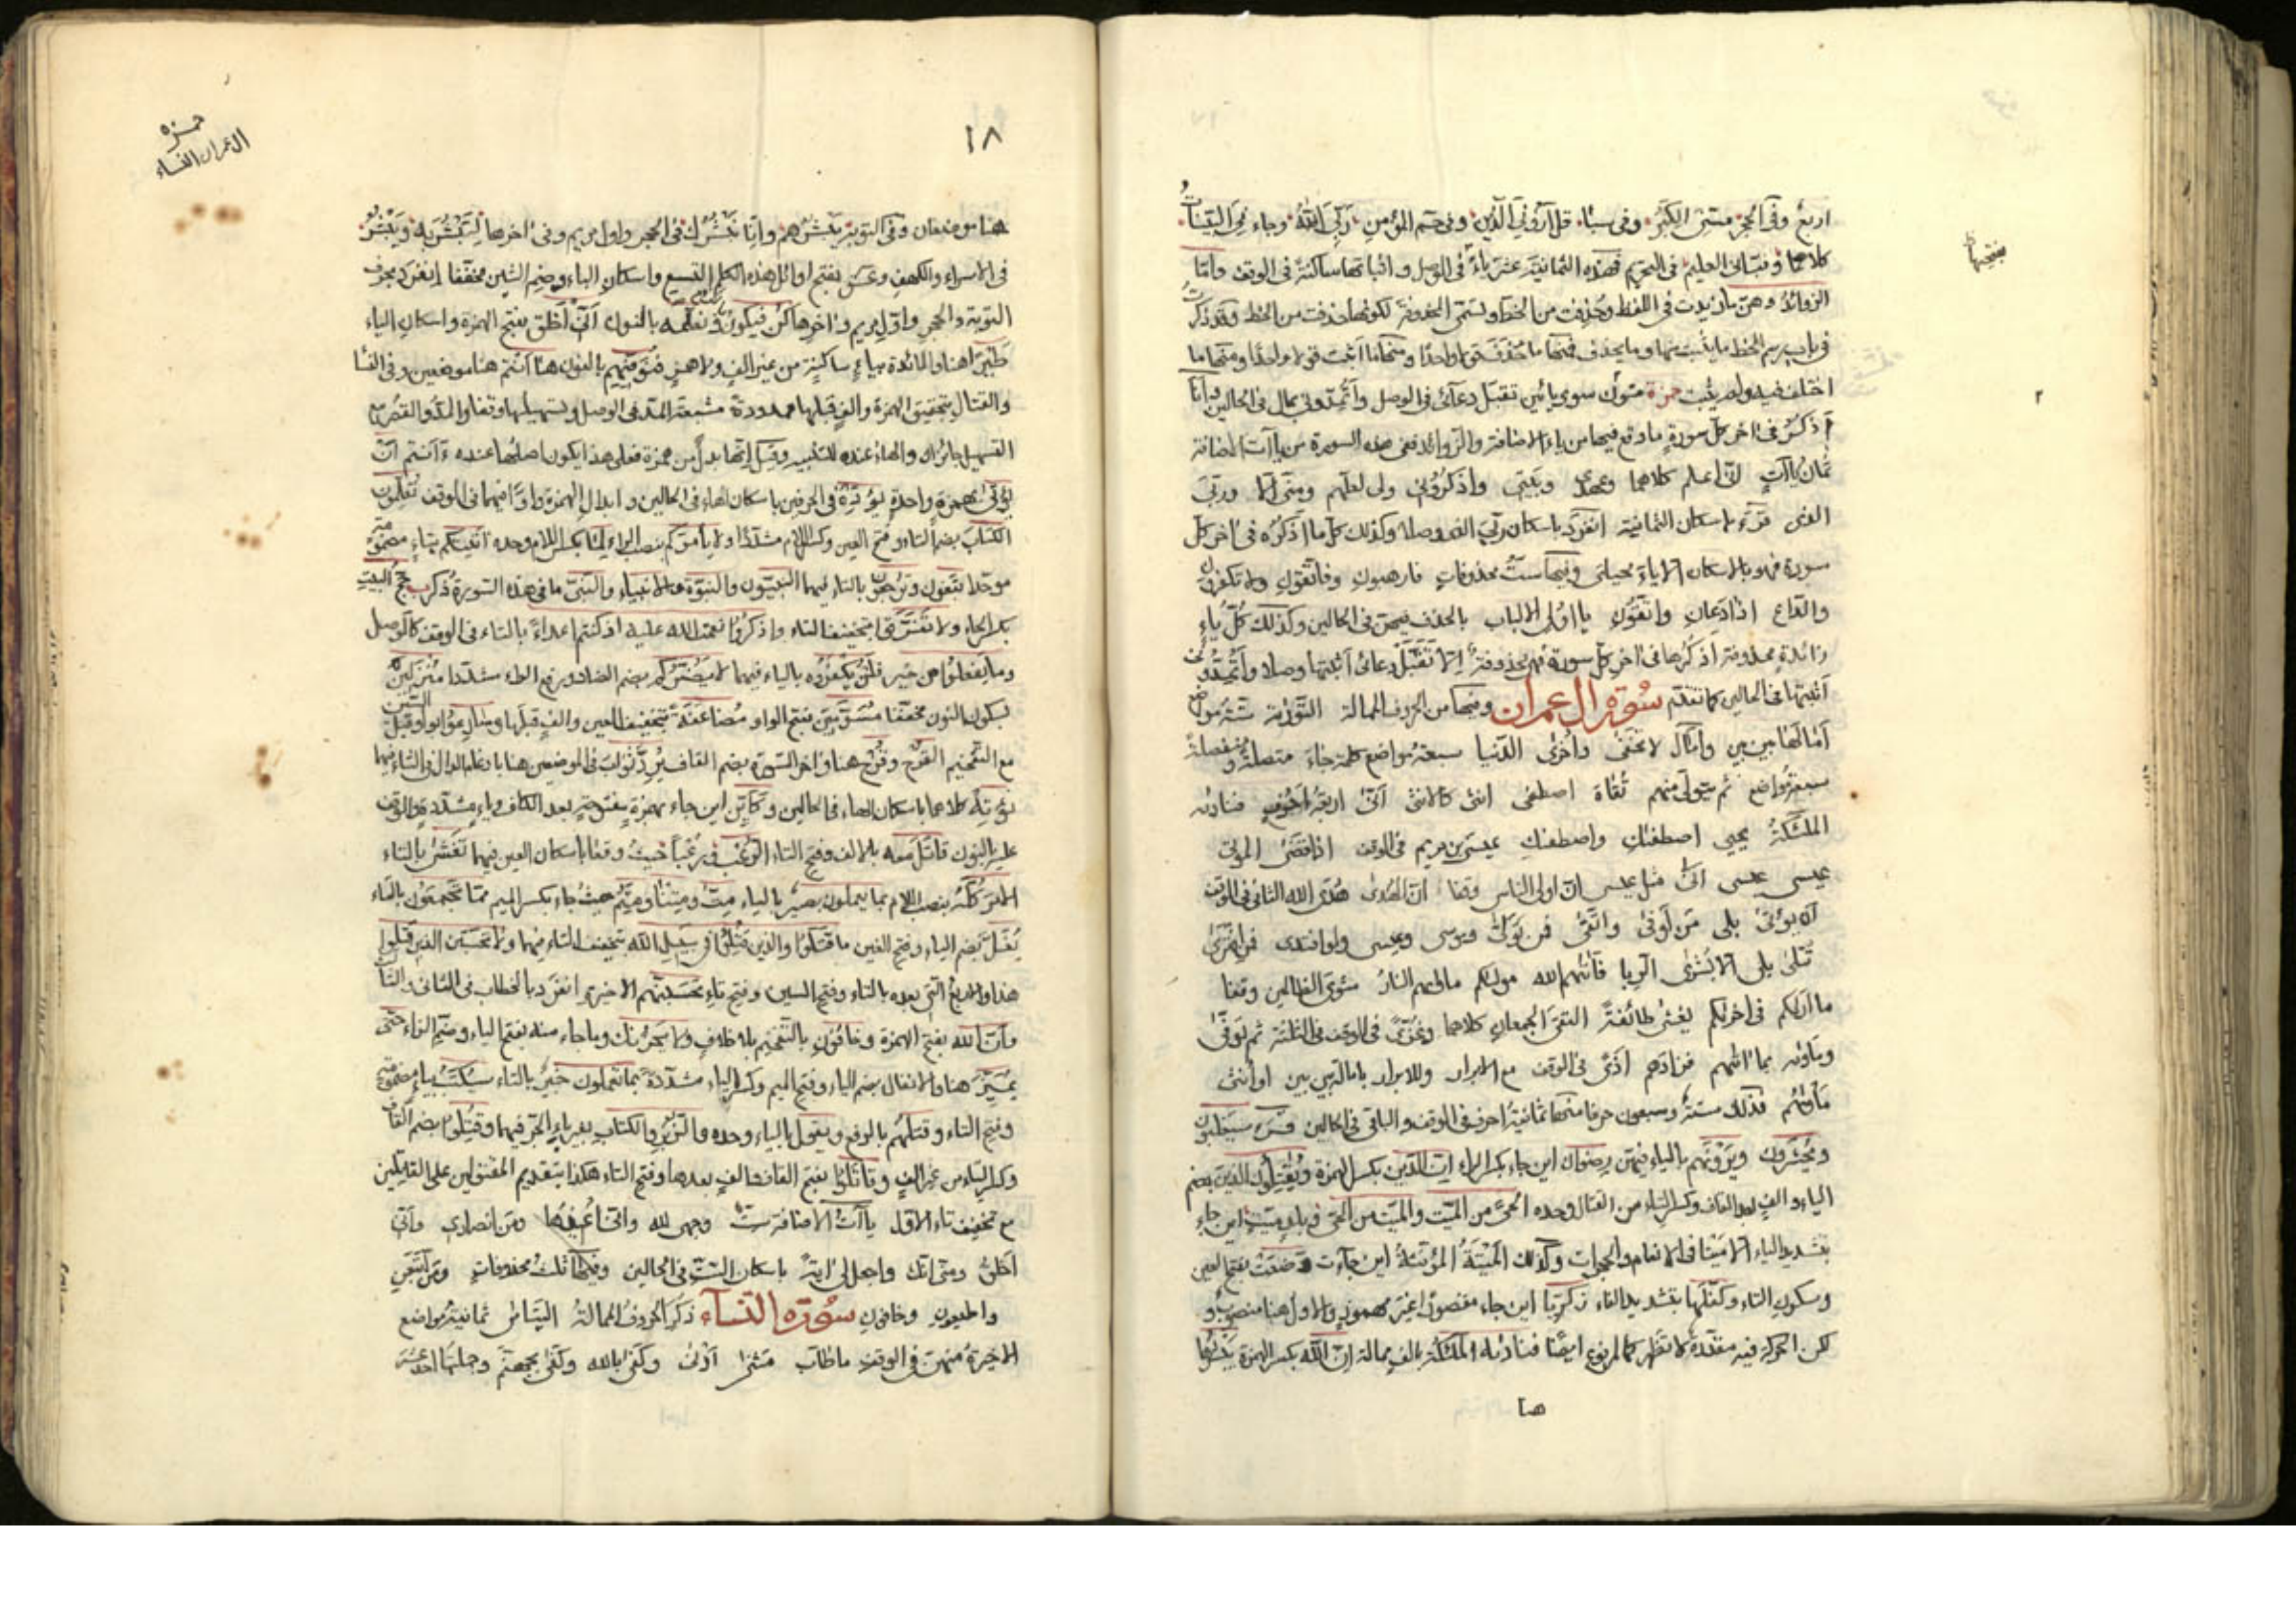 بفتحها
اربع وفي الحجر مسني الكبر وفي سبأ قل اروني الذين وفي حم المؤمن ربي الله وجاءني البينات
كلاهما ونبأني العليم في التحريم فهذه الثمانية عشر ياء في الوصل واثباتها ساكنة في الوقف واما
الزوائد وهي ما زيدت في اللفظ وحذفت من الخط وتسمى المحذوفة لكونها حذفت من الخط وقد ذكرت
في باب رسم الخط ما يثبت منها وما يحذف فمنها ما حذف قولا واحدا ومنها ما اثبت قولا واحدا ومنها ما
اختلف فيه ولم يثبت حمزة منهن سوى يائين تقبل دعائي في الوصل وأتمدونن بمال في الحالين وانا
اذكر في اخر كل سورة ما وقع فيها من ياء الاضافة والزوائد ففي هذه السورة من ياآت الاضافة
ثمان ياآت اني اعلم كلاهما وعهدي وبيتي واذكروني ولي لعلهم ومني الا وربي
الذي قرأ باسكان الثمانية انفرد باسكان ربي الذي وصلا وكذلك كل ما اذكره في اخر كل
سورة فهو بالاسكان الا ياء محياي وفيها ست محذوفات فارهبون وفاتقون ولا تكفرون
والداع اذا دعان واتقون يا اولي الالباب بالحذف فيهن في الحالين وكذلك كل ياء
زائدة محذوفة اذكرها في اخر كل سورة فهي محذوفة الا تقبل دعائي اثبتها وصلا وأتمدونن
اثبتها في الحالين كما تقدم سورة ال عمران وفيها من الحروف الممالة التورية ستة مواضع
امالها بين بين وامال لا يخفى واخرى الدنيا سبعة مواضع كلمة جاء متصلة ومنفصلة
سبعة مواضع ثم يتولى منهم تقاة اصطفى انثى كالانثى انى اربعة احرف فنادته
الملئكة يحيى اصطفىك واصطفىك عيسى بن مريم في الوقف اذا قضى الموتى
عيسى عيسى انى مثل عيسى ان اولى الناس وقفا ان الهدى هدى الله الثاني في الوقف
ان يؤتى بلى من اوفى واتقى فمن تولى وموسى وعيسى ولو افتدى فمن افترى
تتلى بلى الا بشرى الربا فاتيهم الله موليكم ماويهم النار مثوى الظالمين وقفا
ما اريكم في اخريكم يغشى طائفة التقى الجمعان كلاهما وغزى في الوقف في الثلثة ثم توفى
وماويه بما اتيهم فزادهم اذى في الوقف مع الابرار وللابرار بامالة بين بين او انثى
ماويهم فذلك ستة وسبعون حرفا منها ثمانية احرف في الوقف والباقي في الحالين قرأ سيغلبون
ويحشرون ويرونهم بالياء فيهن رضوان اين جاء بكسر الراء ان الدين بكسر الهمزة ويقاتلون الذين بضم
الياء والف بعد القاف وكسر التاء من القتال وحده الحي من الميت والميت من الحي وبلد ميت اين جاء
بتشديد الياء الا ميتا في الانعام والحجرات وكذلك الميتة المؤنثة اين جاءت وضعت بفتح العين
وسكون التاء وكفلها بتشديد الفاء زكريا اين جاء مقصورا غير مهموز والاول هنا منصوب
لكن الحركة فيه مقدرة لا تظهر كالمرفوع ايضا فناديه الملئكة بالف ممالة ان الله بكسر الهمزة يبشرها
حمزة
ال عمران النساء
١٨
هنا موضعان وفي التوبة يبشرهم وانا نبشرك في الحجر واول مريم وفي اخرها لتبشر به ويبشر
في الاسراء والكهف وعسق بفتح اوائل هذه الكلم التسع واسكان الباء وضم الشين مخففا انفرد بحرف
التوبة والحجر واول مريم واخرها كن فيكون ونعلمه بالنون اني اخلق بفتح الهمزة واسكان الياء
طيرا هنا والمائدة بياء ساكنة من غير الف ولا همز فنوفيهم بالنون هاانتم هنا موضعين وفي النسا
والقتال بتحقيق الهمزة والف قبلها ممدودة مشبعة المد في الوصل وتسهيلها وقفا والمد والقصر مع
التسهيل جائزان والهاء عنده للتنبيه وقيل انها بدل من همزة فعلى هذا يكون اصلها عنده ءانتم ان
يؤتى بهمزة واحدة يؤده في الحرفين باسكان الهاء في الحالين وابدال الهمزة واوا فيهما في الوقف تعلمون
الكتاب بضم التاء وفتح العين وكسر اللام مشددا ولا يأمركم بنصب الراء لما بكسر اللام وحده اتيتكم بتاء مضمومة
موحدا تبغون وترجعون بالتاء فيهما النبيون والنبوة والانبياء والنبي ما في هذه السورة ذكر حج البيت
بكسر الحاء ولا تفرقوا بتخفيف التاء واذكروا نعمت الله عليكم اذ كنتم اعداء بالتاء في الوقف كالوصل
وما يفعلوا من خير فلن يكفروه بالياء فيهما لا يضركم بضم الضاد ورفع الراء مشددا منزلين
بسكون النون مخففا مسومين بفتح الواو مضاعفة بتخفيف العين والف قبلها وسارعوا بواو قبل السين
مع التفخيم القرح وقرح هنا واخر السورة بضم القاف يرد ثواب في الموضعين هنا بادغام الدال في الثاء فيهما
نؤته كلاهما باسكان الهاء في الحالين وكأين اين جاء بهمزة مفتوحة بعد الكاف وياء مشددة والوقف
عليه بالنون قاتل معه بالالف وفتح التاء الرعب ورعبا حيث وقعا باسكان العين فيهما تغشى بالتاء
الامر كله بنصب اللام بما يعملون بصير بالياء مت ومتنا ومتم حيث جاء بكسر الميم مما تجمعون بالتاء
يغل بضم الياء وفتح الغين ما قتلوا والذين قتلوا في سبيل الله بتخفيف التاء فيهما ولا تحسبن الذين قتلوا
هذا والاربع التي بعده بالتاء وفتح السين وفتح باء تحسبنهم الاخيرة انفرد بالخطاب في الثاني والثالث
وان الله بفتح الهمزة وخافون بالتفخيم بلا خلاف ولا يحزنك وما جاء منه بفتح الياء وضم الزاء حتى
يميز هنا والانفال بضم الياء وفتح الميم وكسر الياء مشددة بما تعملون خبير بالتاء سيكتب بياء مضمومة
وفتح التاء وقتلهم بالرفع ويقول بالياء وحده والزبر والكتاب بغير باء الجر فيهما وقتلوا بضم القاف
وكسر التاء من غير الف وقاتلوا بفتح القاف والف بعدها وفتح التاء هكذا بتقديم المقتولين على القاتلين
مع تخفيف تاء الاول ياآت الاضافة ست وجهي لله واني اعيذها ومن انصاري واني
اخلق ومني انك واجعل لي اية باسكان الست في الحالين وفيها ثلث محذوفات ومن اتبعن
واطيعون وخافون سورة النساء ذكر الحروف الممالة اليتامى ثمانية مواضع
الاخيرة منهن في الوقف ما طاب مثنى ادنى وكفى بالله وكفى بجهنم وجملتها احد عشر